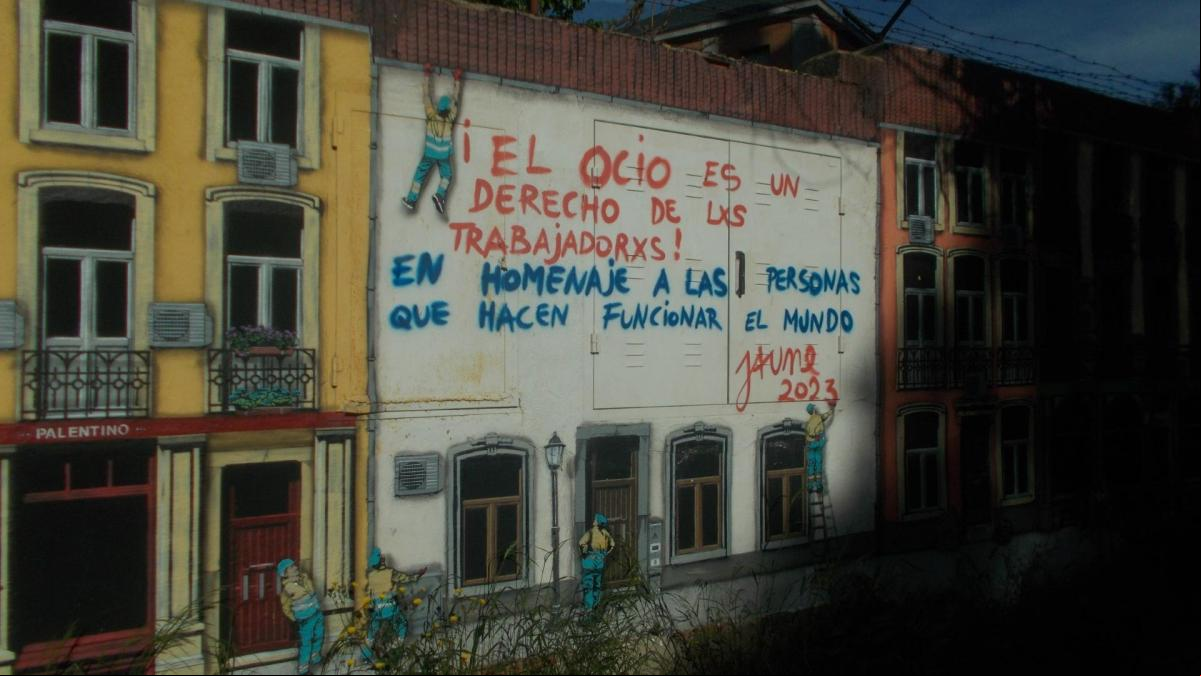 ¡EL OCIO ES UN
DERECHO DE LXS
TRABAJADORXS!
EN HOMENAJE A LAS PERSONAS
QUE HACEN FUNCIONAR EL MUNDO
JAUNE
2023
PALENTINO